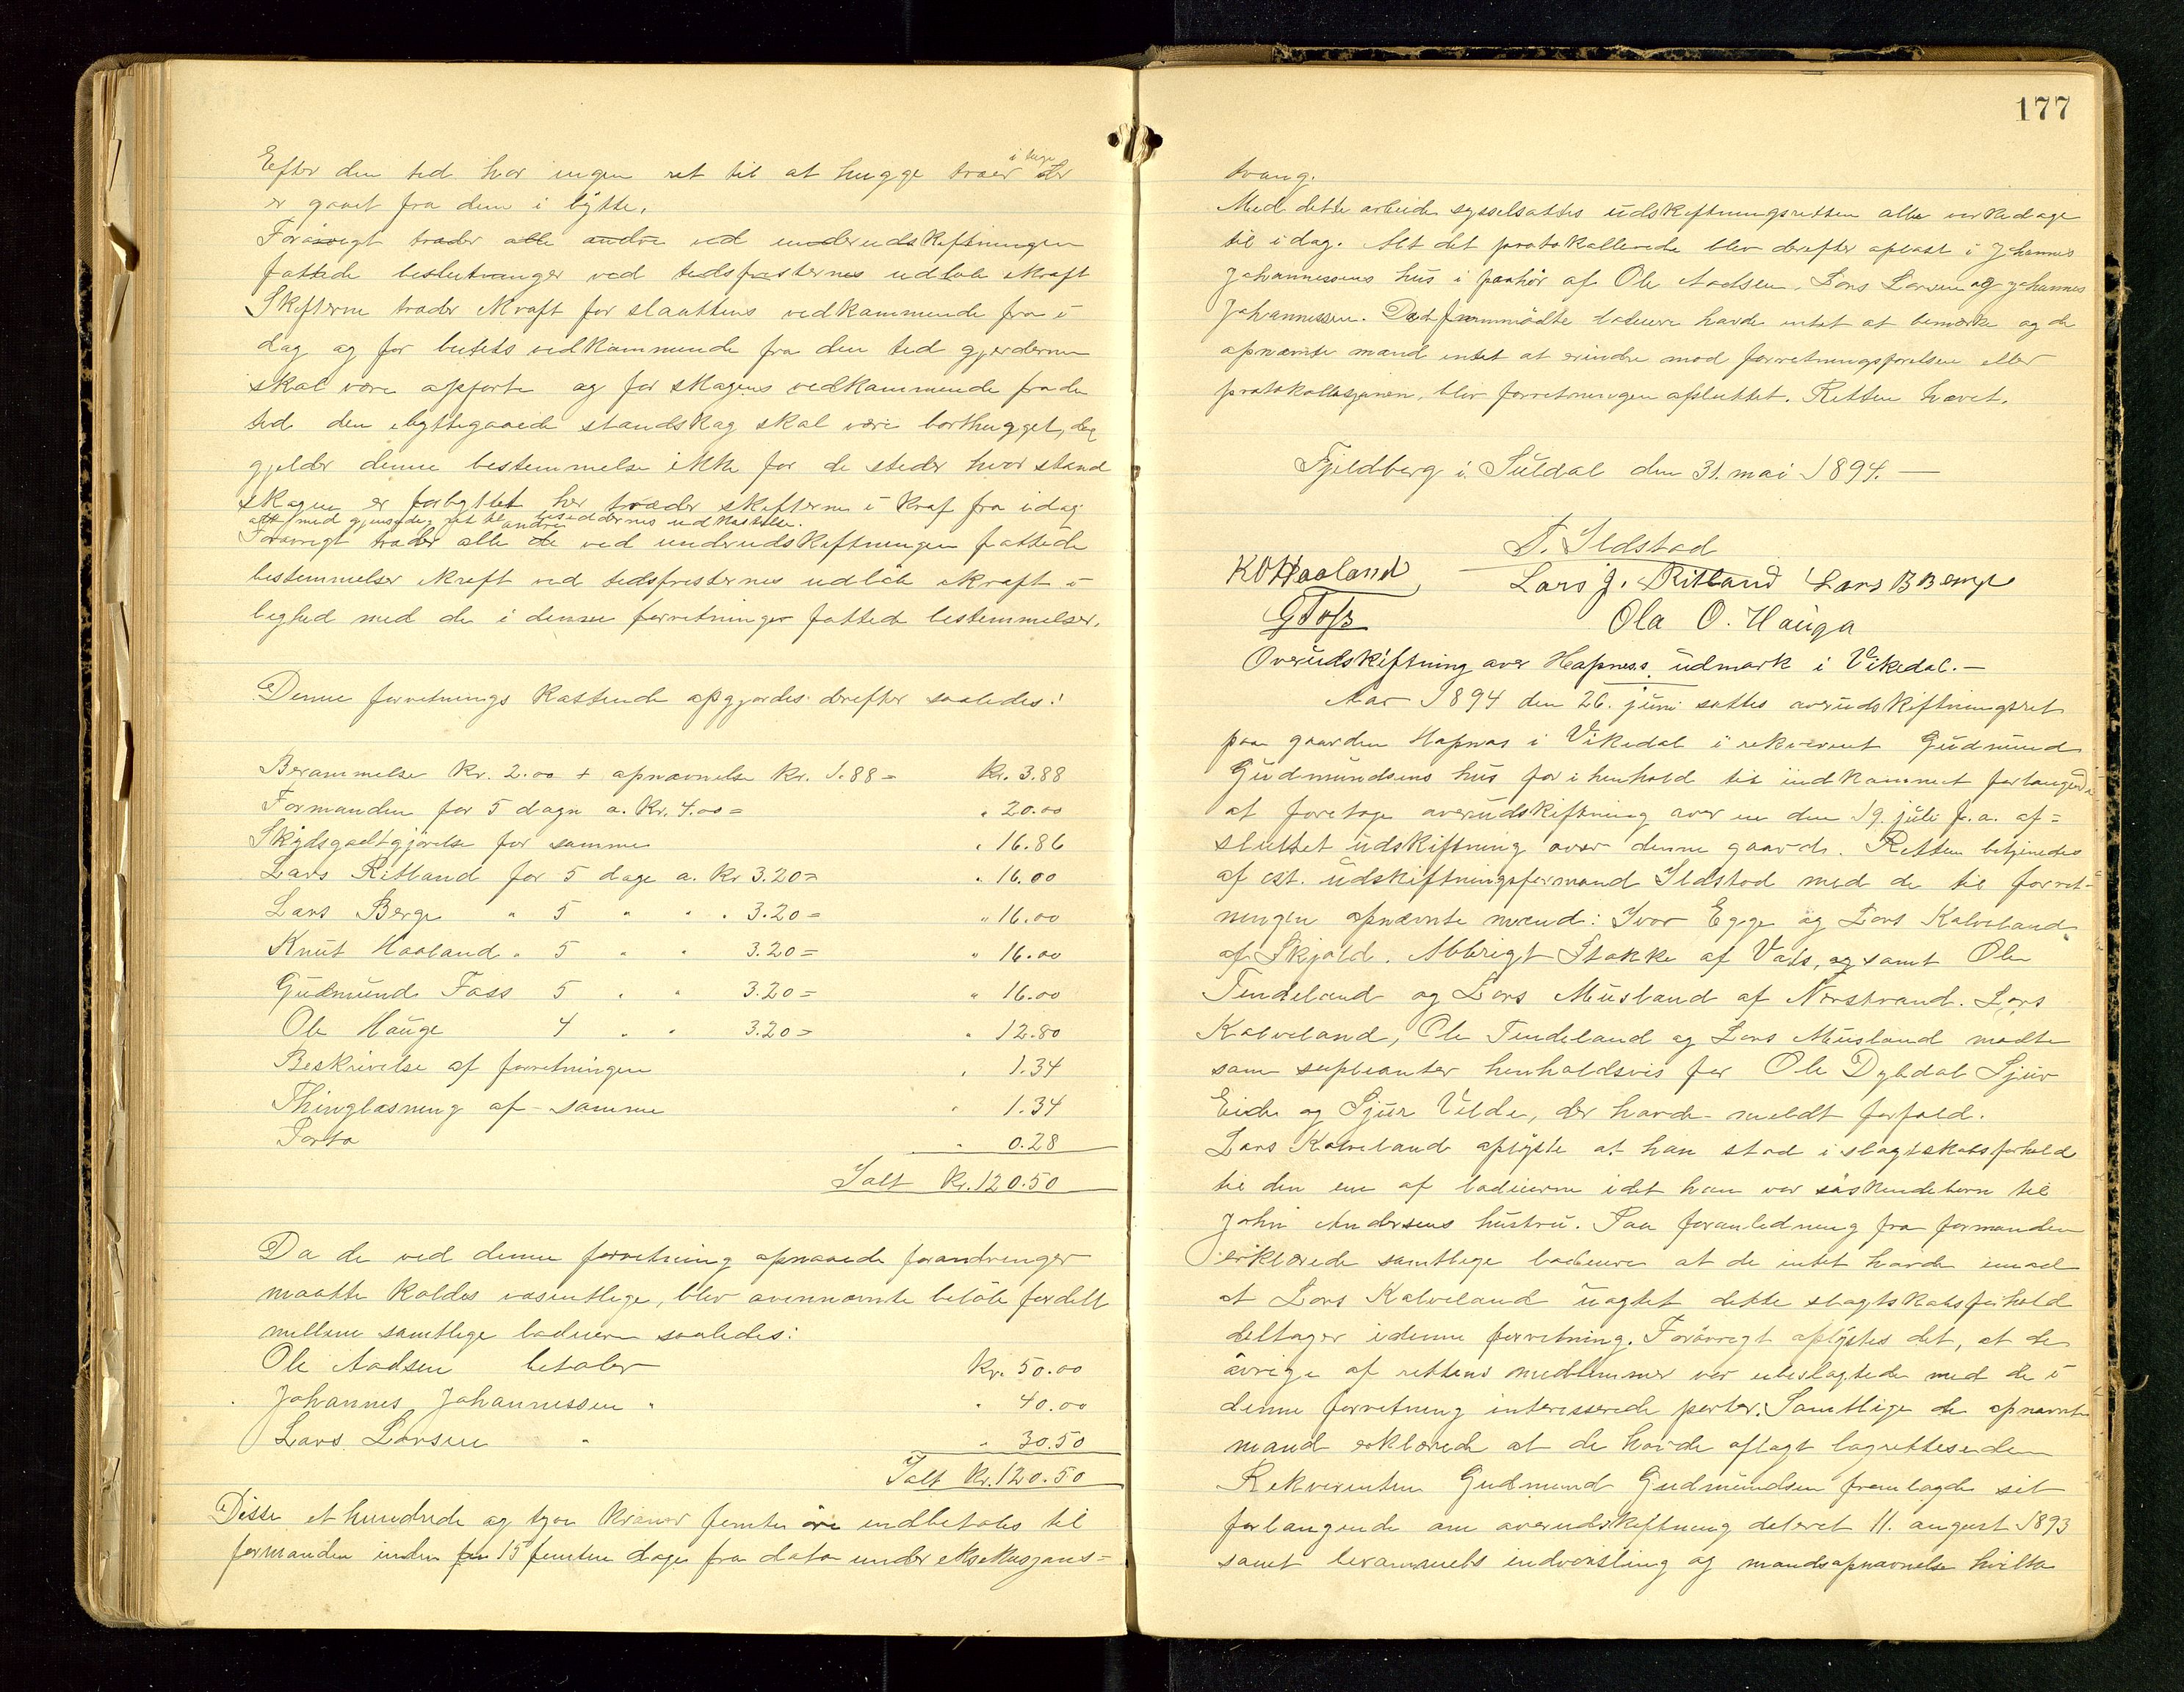 Efter den tid har ingen ret til at hugge træer i teig der
er gaaet fra dem i bytte.
Forøvrigt træder alle andre ved underudskiftningen
fattede beslutninger ved tidsfristernes udløb ikraft
Skifterne træder ikraft for slaattens vedkommende fra i
dag og for beitets vedkommende fra den tid gjerderne
skal være opførte og for skogens vedkommende fra den
tid den ibyttegaaede standskog skal være borthugget, dog
gjelder denne bestemmelse ikke for de steder hvor stand
skogen er forbyttet her træder skifterne i kraf fra idag
alt med gjensidig ret til besiddernes udkastelse.
Forøvrigt træder alle de andre ved underudskiftningen fattede
bestemmelser ikraft ved tidsfristernes udløb ikraft i
lighed med de i denne forretninger fattede bestemmelser.
Denne forretnings kostende opgjordes derefter saaledes:
Berammelse kr. 2.00 + opnævnelse kr. 1.88 = kr. 3.88
Formanden for 5 dage a. kr. 4.00 = " 20.00
Skydsgodtgjørelse for samme " 16.86
Lars Ritland for 5 dage a. kr 3.20 = " 16.00
Lars Berge " 5 " " " 3.20 = " 16.00
Knut Haaland " 5 " " 3.20 = " 16.00
Gudmund Foss 5 " " 3.20 = " 16.00
Ole Hauge 4 " " 3.20 = " 12.80
Beskrivelse af forretningen " 1.34
Thinglæsning af samme " 1.34
Porto " 0.28
Ialt Kr. 120.50
Da de ved denne forretning opnaaede forandringer
maatte kaldes væsentlige, blev ovennævnte beløb fordelt
mellem samtlige lodeiere saaledes:
Ole Aadsen betaler Kr. 50.00
Johannes Johannessen " " 40.00
Lars Larsen " " 30.50
Ialt Kr. 120.50
Disse et hundrede og tyve kroner femti øre indbetales til
formanden inden fem 15 femten dage fra dato under eksekusjons=
177
tvang.
Med dette arbeide sysselsattes udskiftningsretten alle virkedage
til idag. Alt det protokollerede blev derefter oplæst i Johannes
Johannessens hus i paahør af Ole Aadsen, Lars Larsen og Johannes
Johannessen. Da de fremmødte lodeiere havde intet at bemærke og de
opnævnte mænd intet at erindre mod forretningsførelsen eller
protokollasjonen, blev forretningen afsluttet. Retten hævet.
Fjeldberg i Suldal den 31. mai 1894. —
T. Ildstad
K O Haaland Lars J. Ritland Lars B Berge
G T Foss Ola O. Hauga
Overudskiftning over Hapnes udmark i Vikedal. —
Aar 1894 den 26. juni sattes overudskiftningsret
paa gaarden Hapnes i Vikedal i rekvirent Gudmund
Gudmundsens hus for i henhold til indkommet forlangende
at foretage overudskiftning over en den 19. juli f.a. af=
sluttet udskiftning over denne gaard. Retten betjenedes
af cst. udskiftningsformand Ildstad med de til forret-
ningen opnævnte mænd: Ivar Egge og Lars Kalveland
af Skjold. Abbrigt Stakke af Vats, og samt Ole
Tendeland og Lars Musland af Nerstrand. Lars
Kalveland, Ole Tendeland og Lars Musland mødte
som supleanter henholdsvis for Ole Dybdal Sjur
Eide og Sjur Velde, der havde meldt forfald.
Lars Kalveland oplyste at han stod i slagtskabsforhold
til den ene af lodeierne idet han var søskendebarn til
John Andersens hustru. Paa foranledning fra formanden
erklærede samtlige lodeiere at de intet havde imod
at Lars Kalveland uagtet dette slagtskabsforhold
deltager i denne forretning. Forøvrigt oplystes det, at de
øvrige af rettens medlemmer var ubeslagtede med de i
denne forretning interesserede parter. Samtlige de opnævnte
mænd erklærede at de havde aflagt lagretteseden
Rekvirenten Gudmund Gudmundsen fremlagde sit
forlangende om overudskiftning dateret 11. august 1893
samt berammels indvarsling og mandsopnævnelse hvilke